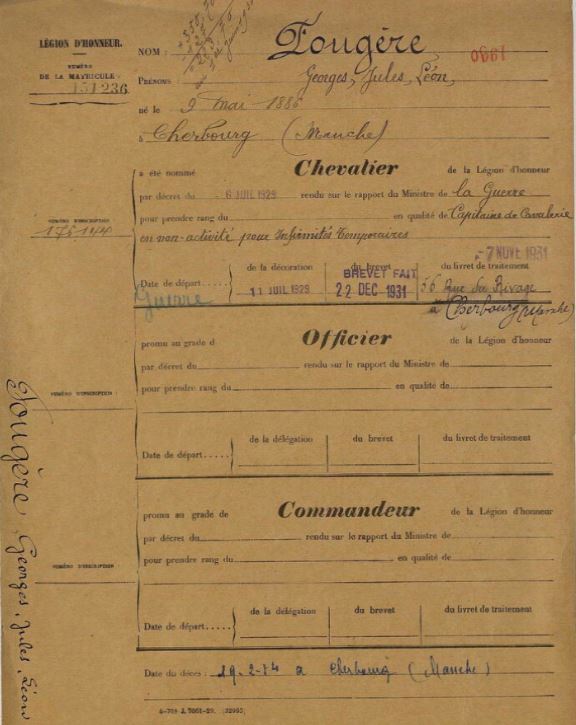 LÉGION D'HONNEUR.
NUMÉRO
DE LA MATRICULE :
151236
NOM : Fougère
0661
PRÉNOMS : Georges, Jules, Léon,
né le 9 mai 1886
à Cherbourg (Manche)
a été nommé Chevalier de la Légion d'honneur
par décret du 6 JUIL 1929 rendu sur le rapport du Ministre de la Guerre
pour prendre rang du en qualité de Capitaine de Cavalerie
NUMÉRO D'INSCRIPTION
en non-activité pour Infirmités Temporaires
-7 NOVE 1931
de la décoration du brevet du livret de traitement
Date de départ. 11 JUIL 1929 BREVET FAIT 22 DEC 1931 56 Rue du Rivage
Guerre
à Cherbourg (Manche)
promu au grade d Officier de la Légion d'honneur
par décret du rendu sur le rapport du Ministre de
pour prendre rang du en qualité de
NUMÉRO D'INSCRIPTION
de la délégation du brevet du livret de traitement
Date de départ.....
promu au grade de Commandeur de la Légion d'honneur
par décret du rendu sur le rapport du Ministre de
pour prendre rang du en qualité de
NUMÉRO D'INSCRIPTION
de la délégation du brevet du livret de traitement
Date de départ.....
Date du décès : 19-2-74 à Cherbourg (Manche)
Fougère, Georges, Jules, Léon